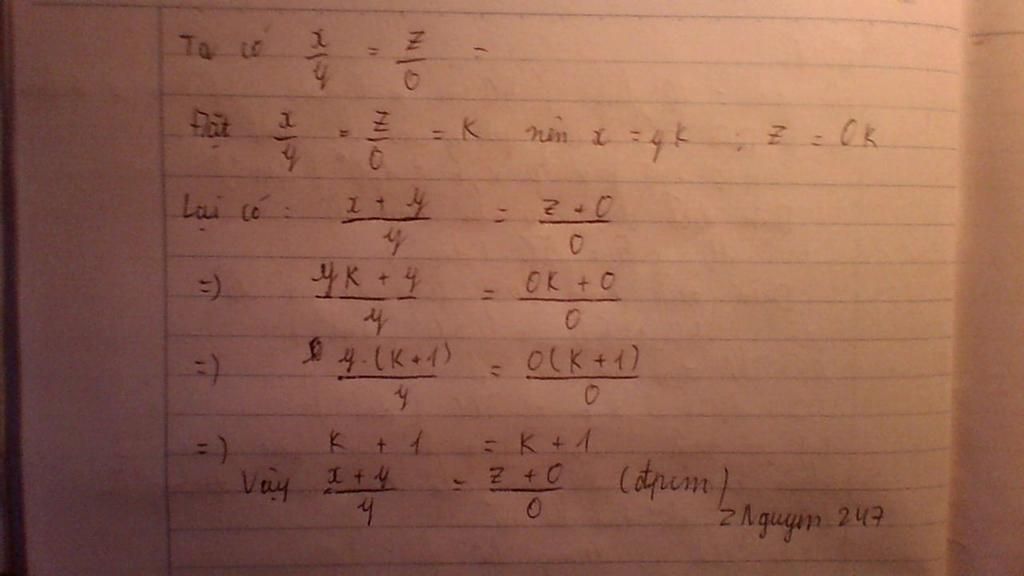 Ta có x/y = z/0 =
Đặt x/y = z/0 = K nên x = yK ; z = 0K
Lại có : (x + y)/y = (z + 0)/0
=) (yK + y)/y = (0K + 0)/0
=) y.(K+1)/y = 0(K+1)/0
=) K + 1 = K + 1
Vậy (x+y)/y = (z+0)/0 (đpcm)
ZNguym 247